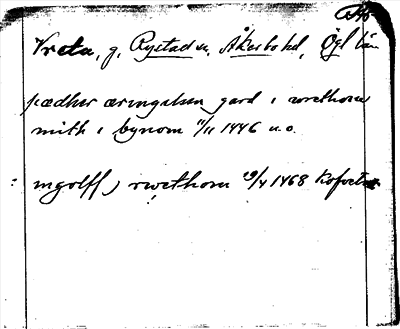 Vreta, g, Rystad sn, Åkerbo hd, Ögl län
pædher æringælsn gard i wrethom
mith i bynom 11/11 1446 u.o.
ingolff j rwethom 29/4 1468